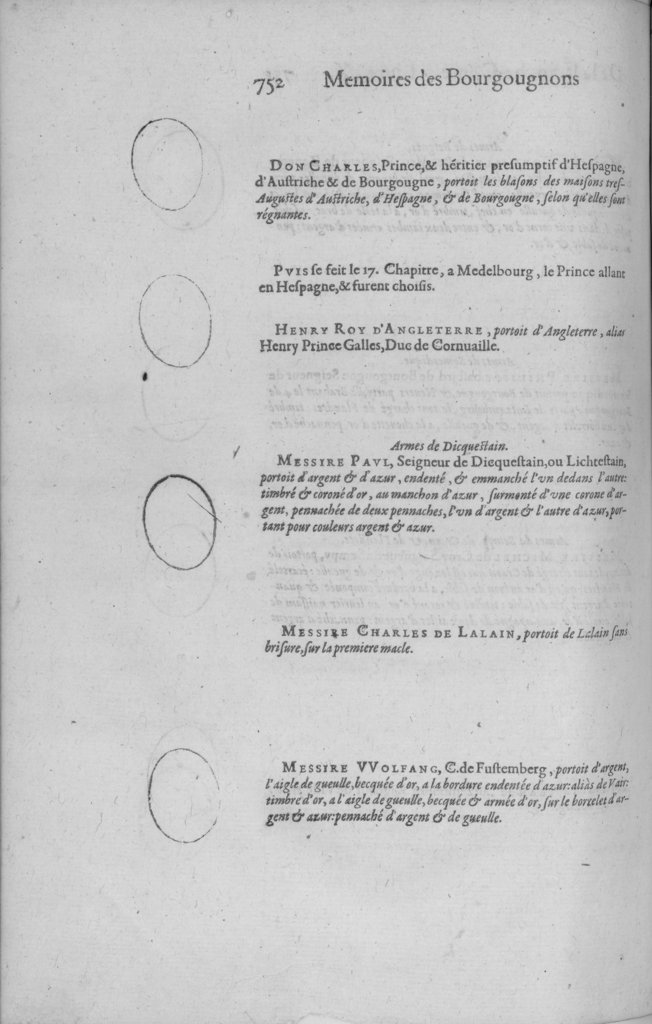 752 Memoires des Bourgougnons
DON CHARLES,Prince,& héritier preſumptif d'Heſpagne,
d'Auſtriche & de Bourgougne, portoit les blaſons des maiſons treſ-
Auguſtes d'Auſtriche, d'Heſpagne, & de Bourgougne, ſelon qu'elles ſont
régnantes.
PVIS ſe feit le 17. Chapitre, a Medelbourg, le Prince allant
en Heſpagne,& furent choiſis.
HENRY ROY D'ANGLETERRE, portoit d'Angleterre, alias
Henry Prince Galles,Duc de Cornuaille.
Armes de Dicqueſtain.
MESSIRE PAVL, Seigneur de Dicqueſtain,ou Lichteſtain,
portoit d'argent & d'azur, endenté, & emmanché l'vn dedans l'autre:
timbré & coroné d'or, au manchon d'azur, ſurmonté d'vne corone d'ar-
gent, pennachée de deux pennaches, l'vn d'argent & l'autre d'azur, por-
tant pour couleurs argent & azur.
MESSIRE CHARLES DE LALAIN, portoit de Lalain ſans
briſure,ſur la premiere macle.
MESSIRE VVOLFANG, C.de Fuſtemberg, portoit d'argent,
l'aigle de gueulle,becquée d'or, a la bordure endentée d'azur:aliàs de Vair:
timbré d'or, a l'aigle de gueulle, becquée & armée d'or, ſur le borcelet d'ar-
gent & azur:pennaché d'argent & de gueulle.